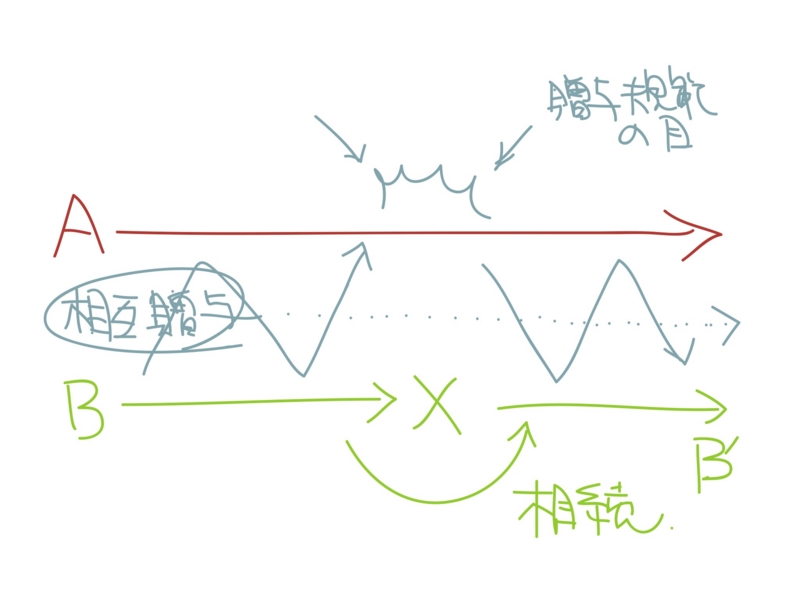 贈与規範
の目
A
相互贈与
B
X
B'
相続.